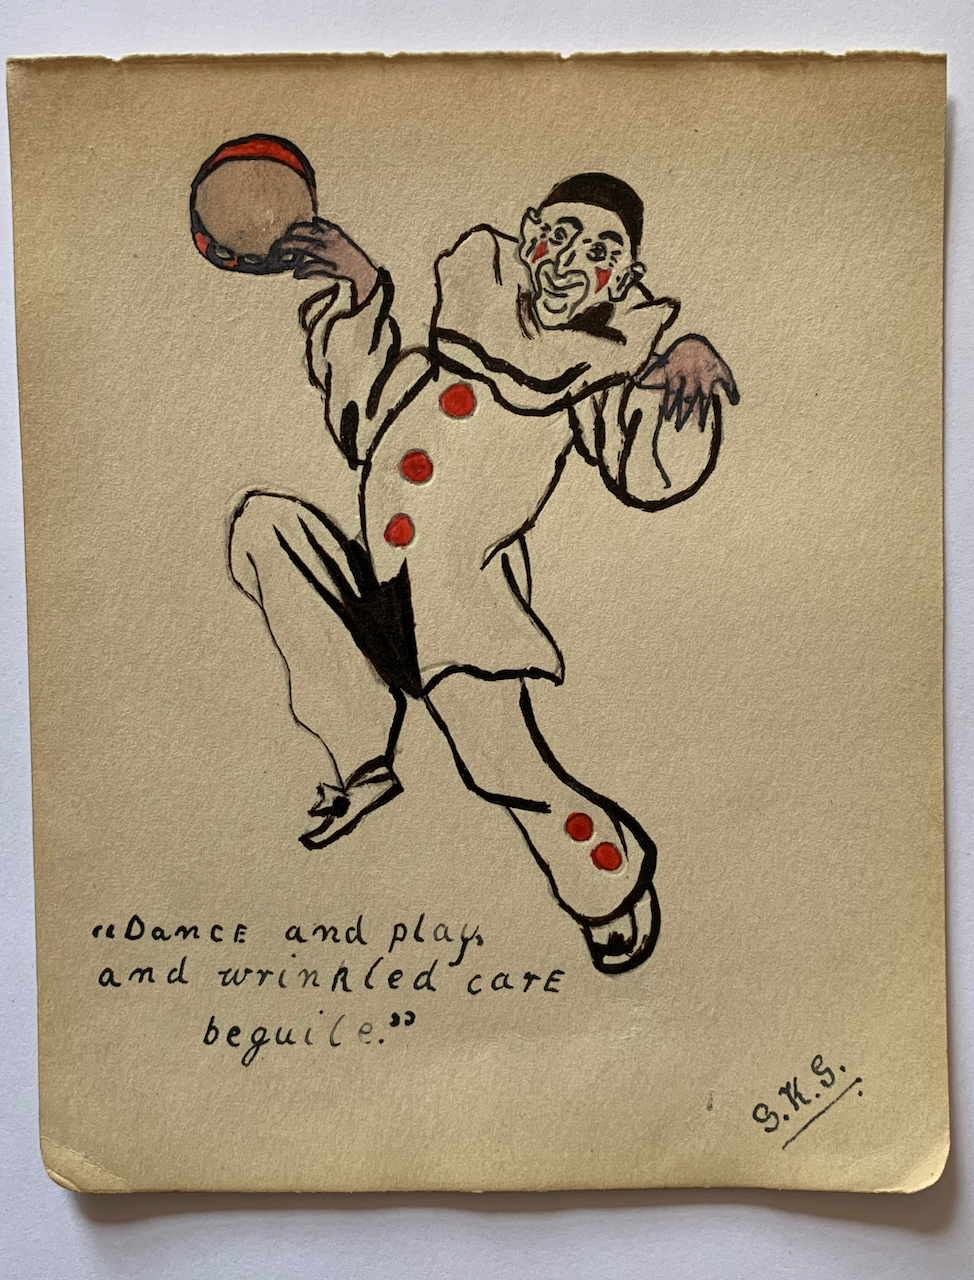 “Dance and play,
and wrinkled care
beguile.”
S.K.S.